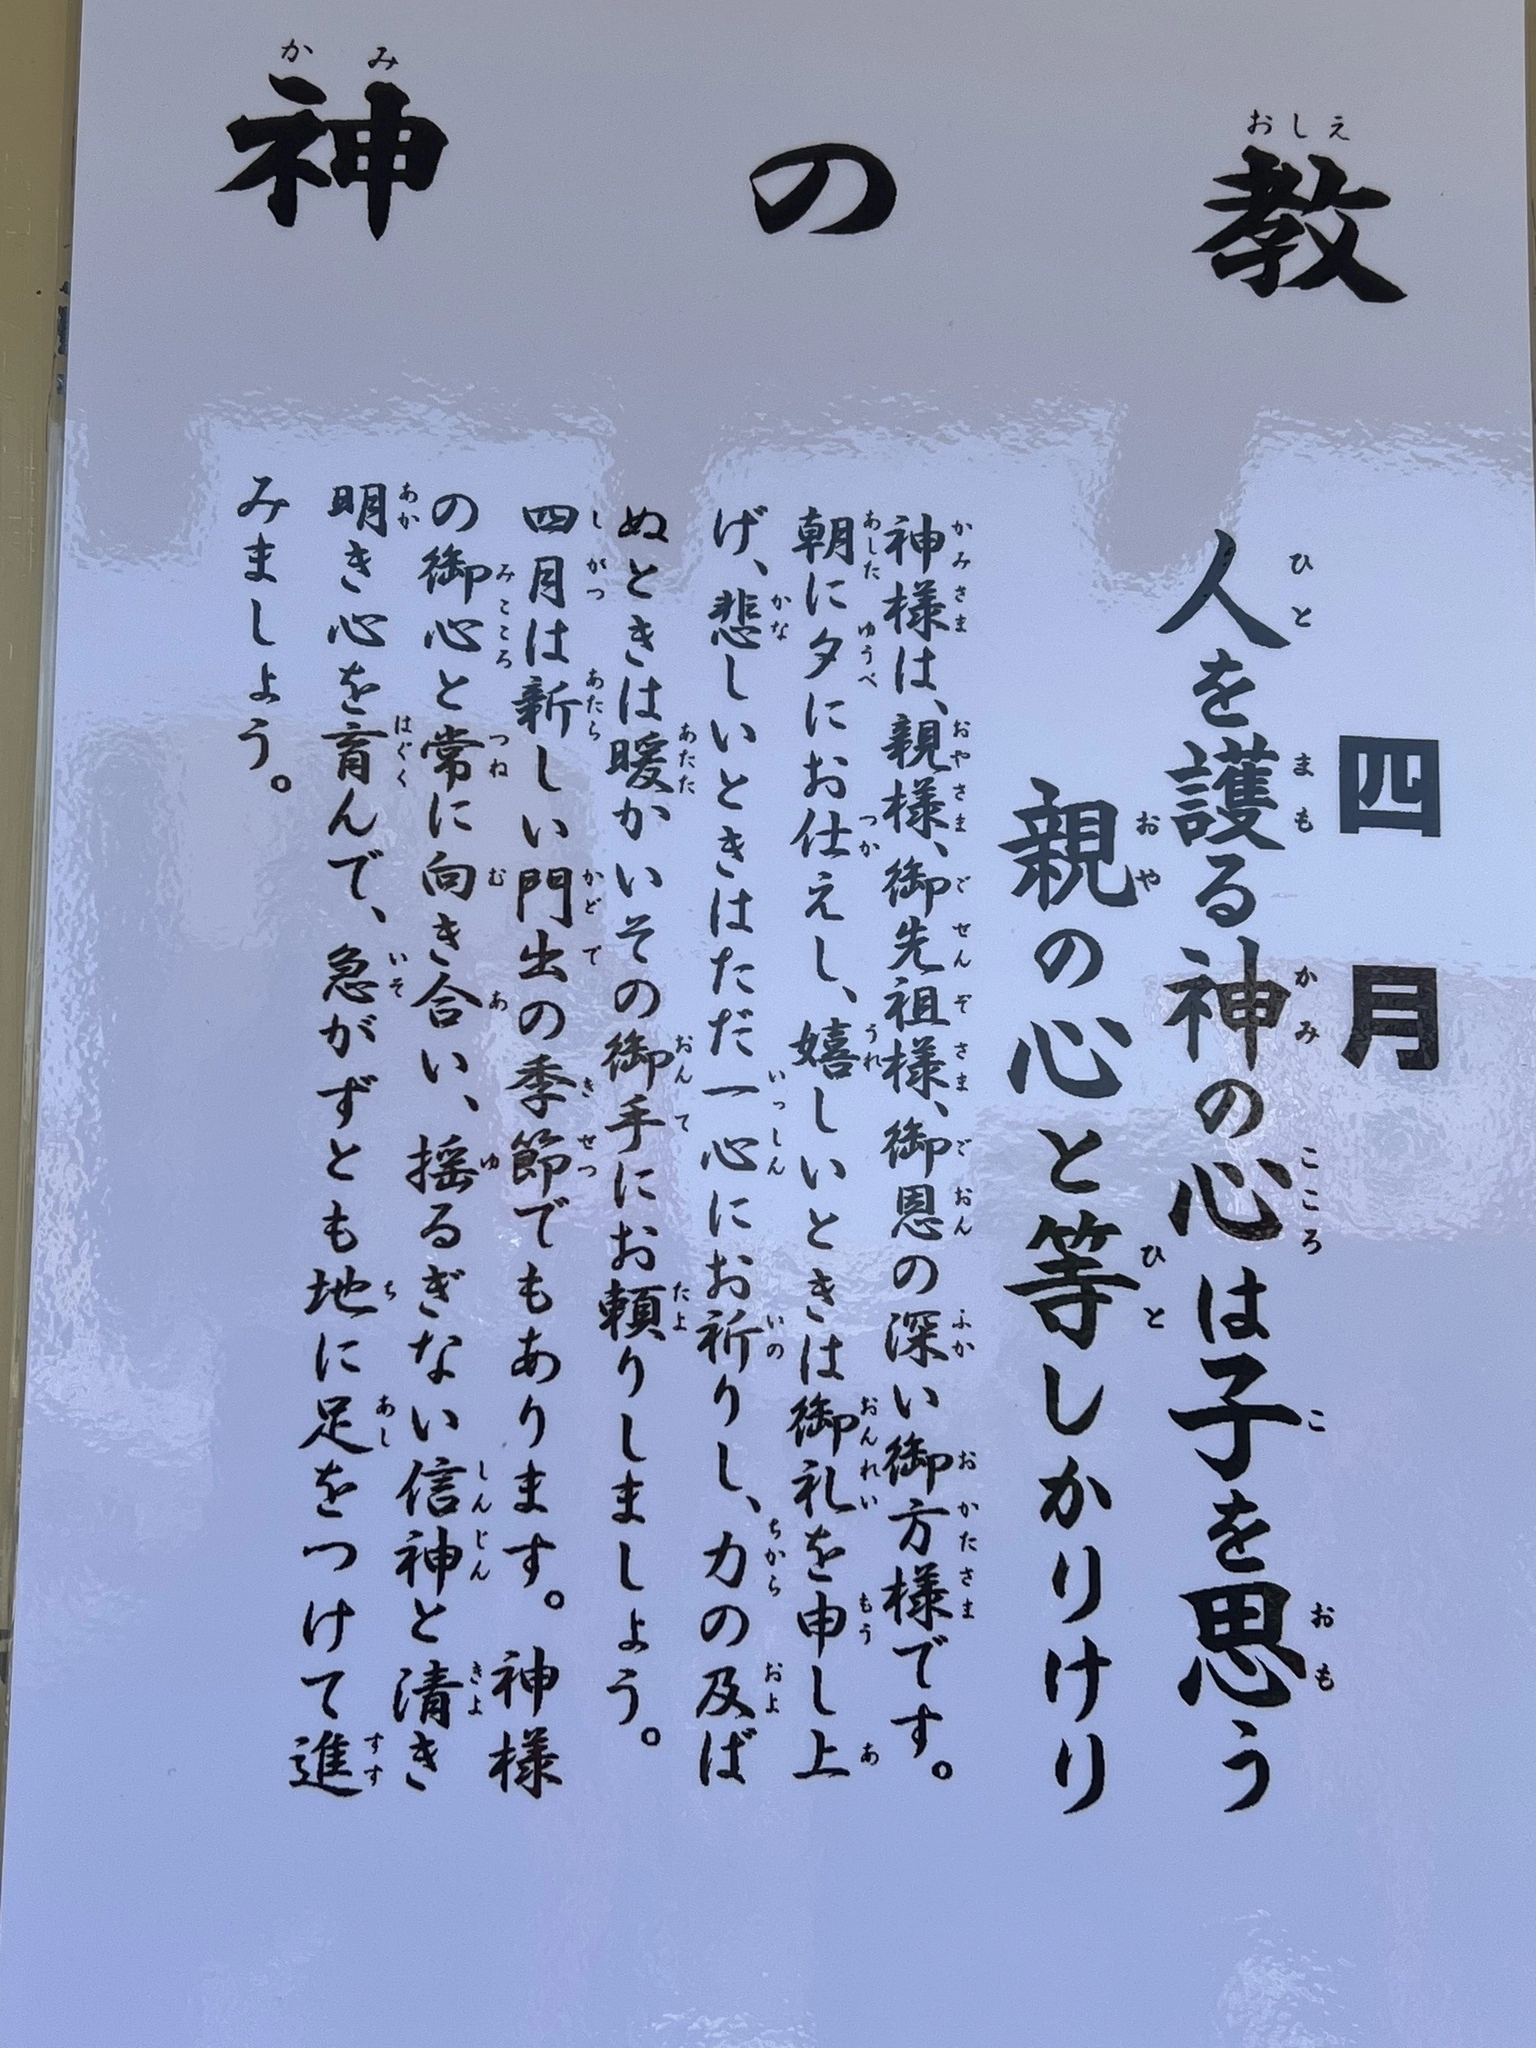 神の教
四月
人を護る神の心は子を思う
親の心と等しかりけり
神様は、親様、御先祖様、御恩の深い御方様です。
朝に夕にお仕えし、嬉しいときは御礼を申し上
げ、悲しいときはただ一心にお祈りし、力の及ば
ぬときは暖かいその御手にお頼りしましょう。
四月は新しい門出の季節でもあります。神様
の御心と常に向き合い、揺るぎない信神と清き
明き心を育んで、急がずとも地に足をつけて進
みましょう。